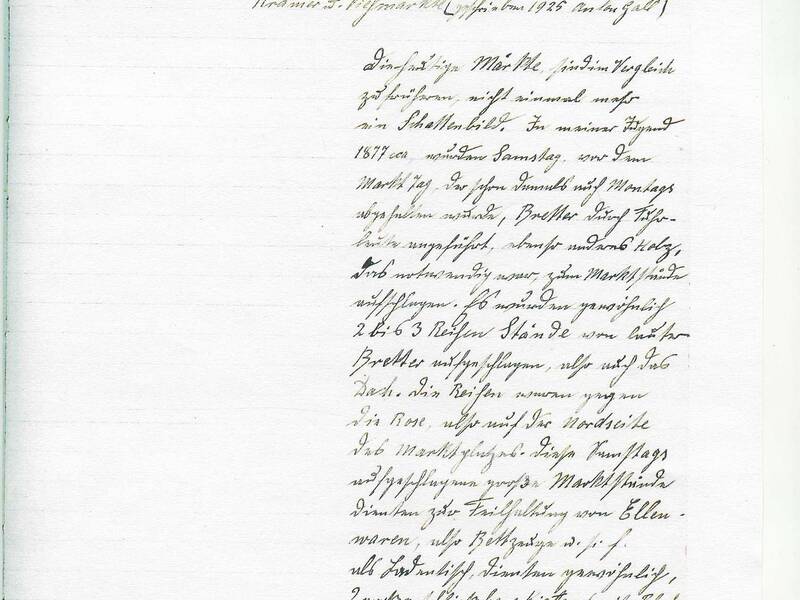 Krämer u. Viehmärkte (geschrieben 1925 Anton Gall)
Die heutige Märkte, sind im Vergleich
zu früheren, nicht einmal mehr
ein Schattenbild. In meiner Jugend
1877 cca, wurden Samstag, vor dem
Markt Tag, der schon damals auch Montags
abgehalten wurde, Bretter durch Fuhr-
leute angeführt, ebenso anderes Holz,
das notwendig war, zum Marktstände
aufschlagen. Es wurden gewöhnlich
2 bis 3 Reihen Stände von lauter
Bretter aufgeschlagen, also auch das
Dach. Die Reihen waren gegen
die Rose, also auf der Nordseite
des Marktplatzes. Diese Samstags
aufgeschlagene große Marktstände
dienten zur Feilhaltung von Ellen-
waren, also Bettzeuge u. s. f.
als Ladentisch, dienten gewöhnlich,